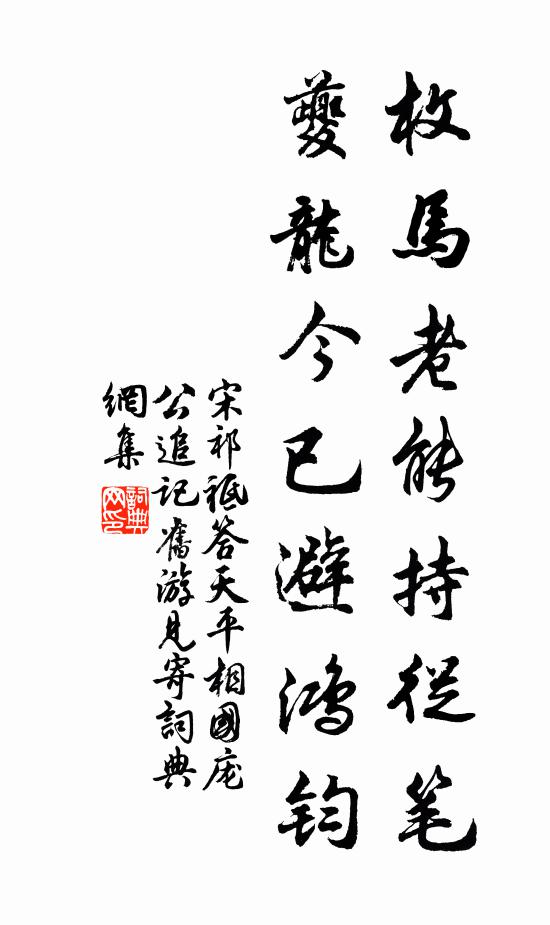 枚馬老能持從笔
夔龍今已避鴻鈞
宋祁祗答天平相國庞
公追记舊游見寄詞典
網集
詞典网印